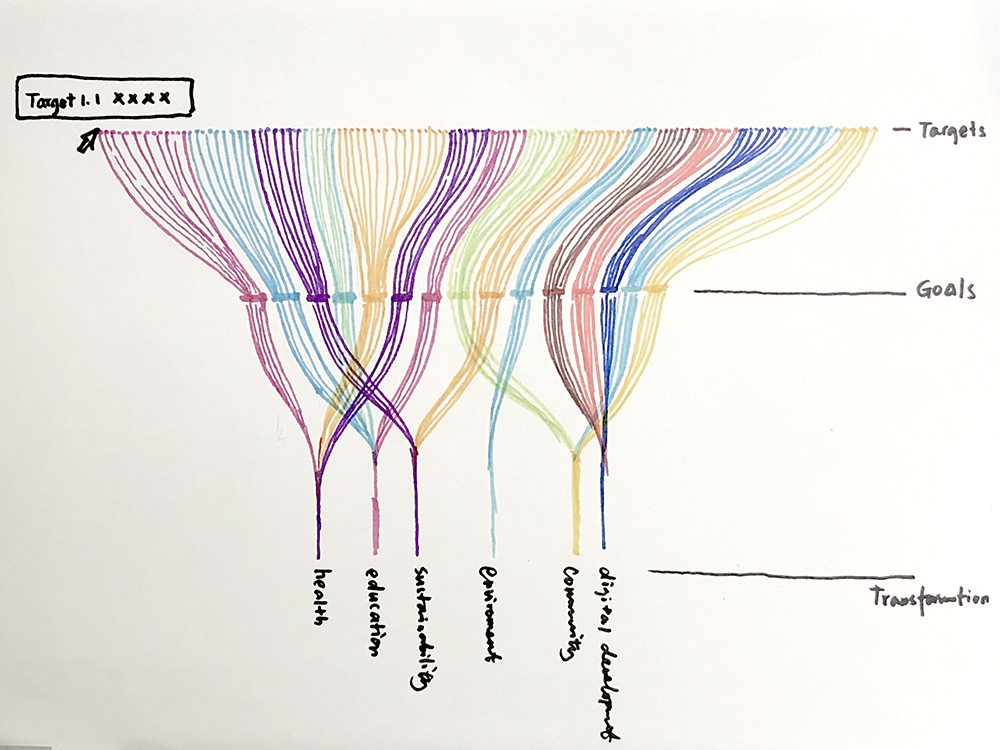 Target 1.1 xxxx
Targets
Goals
Transformation
health
education
sustainability
enviroment
community
digital development